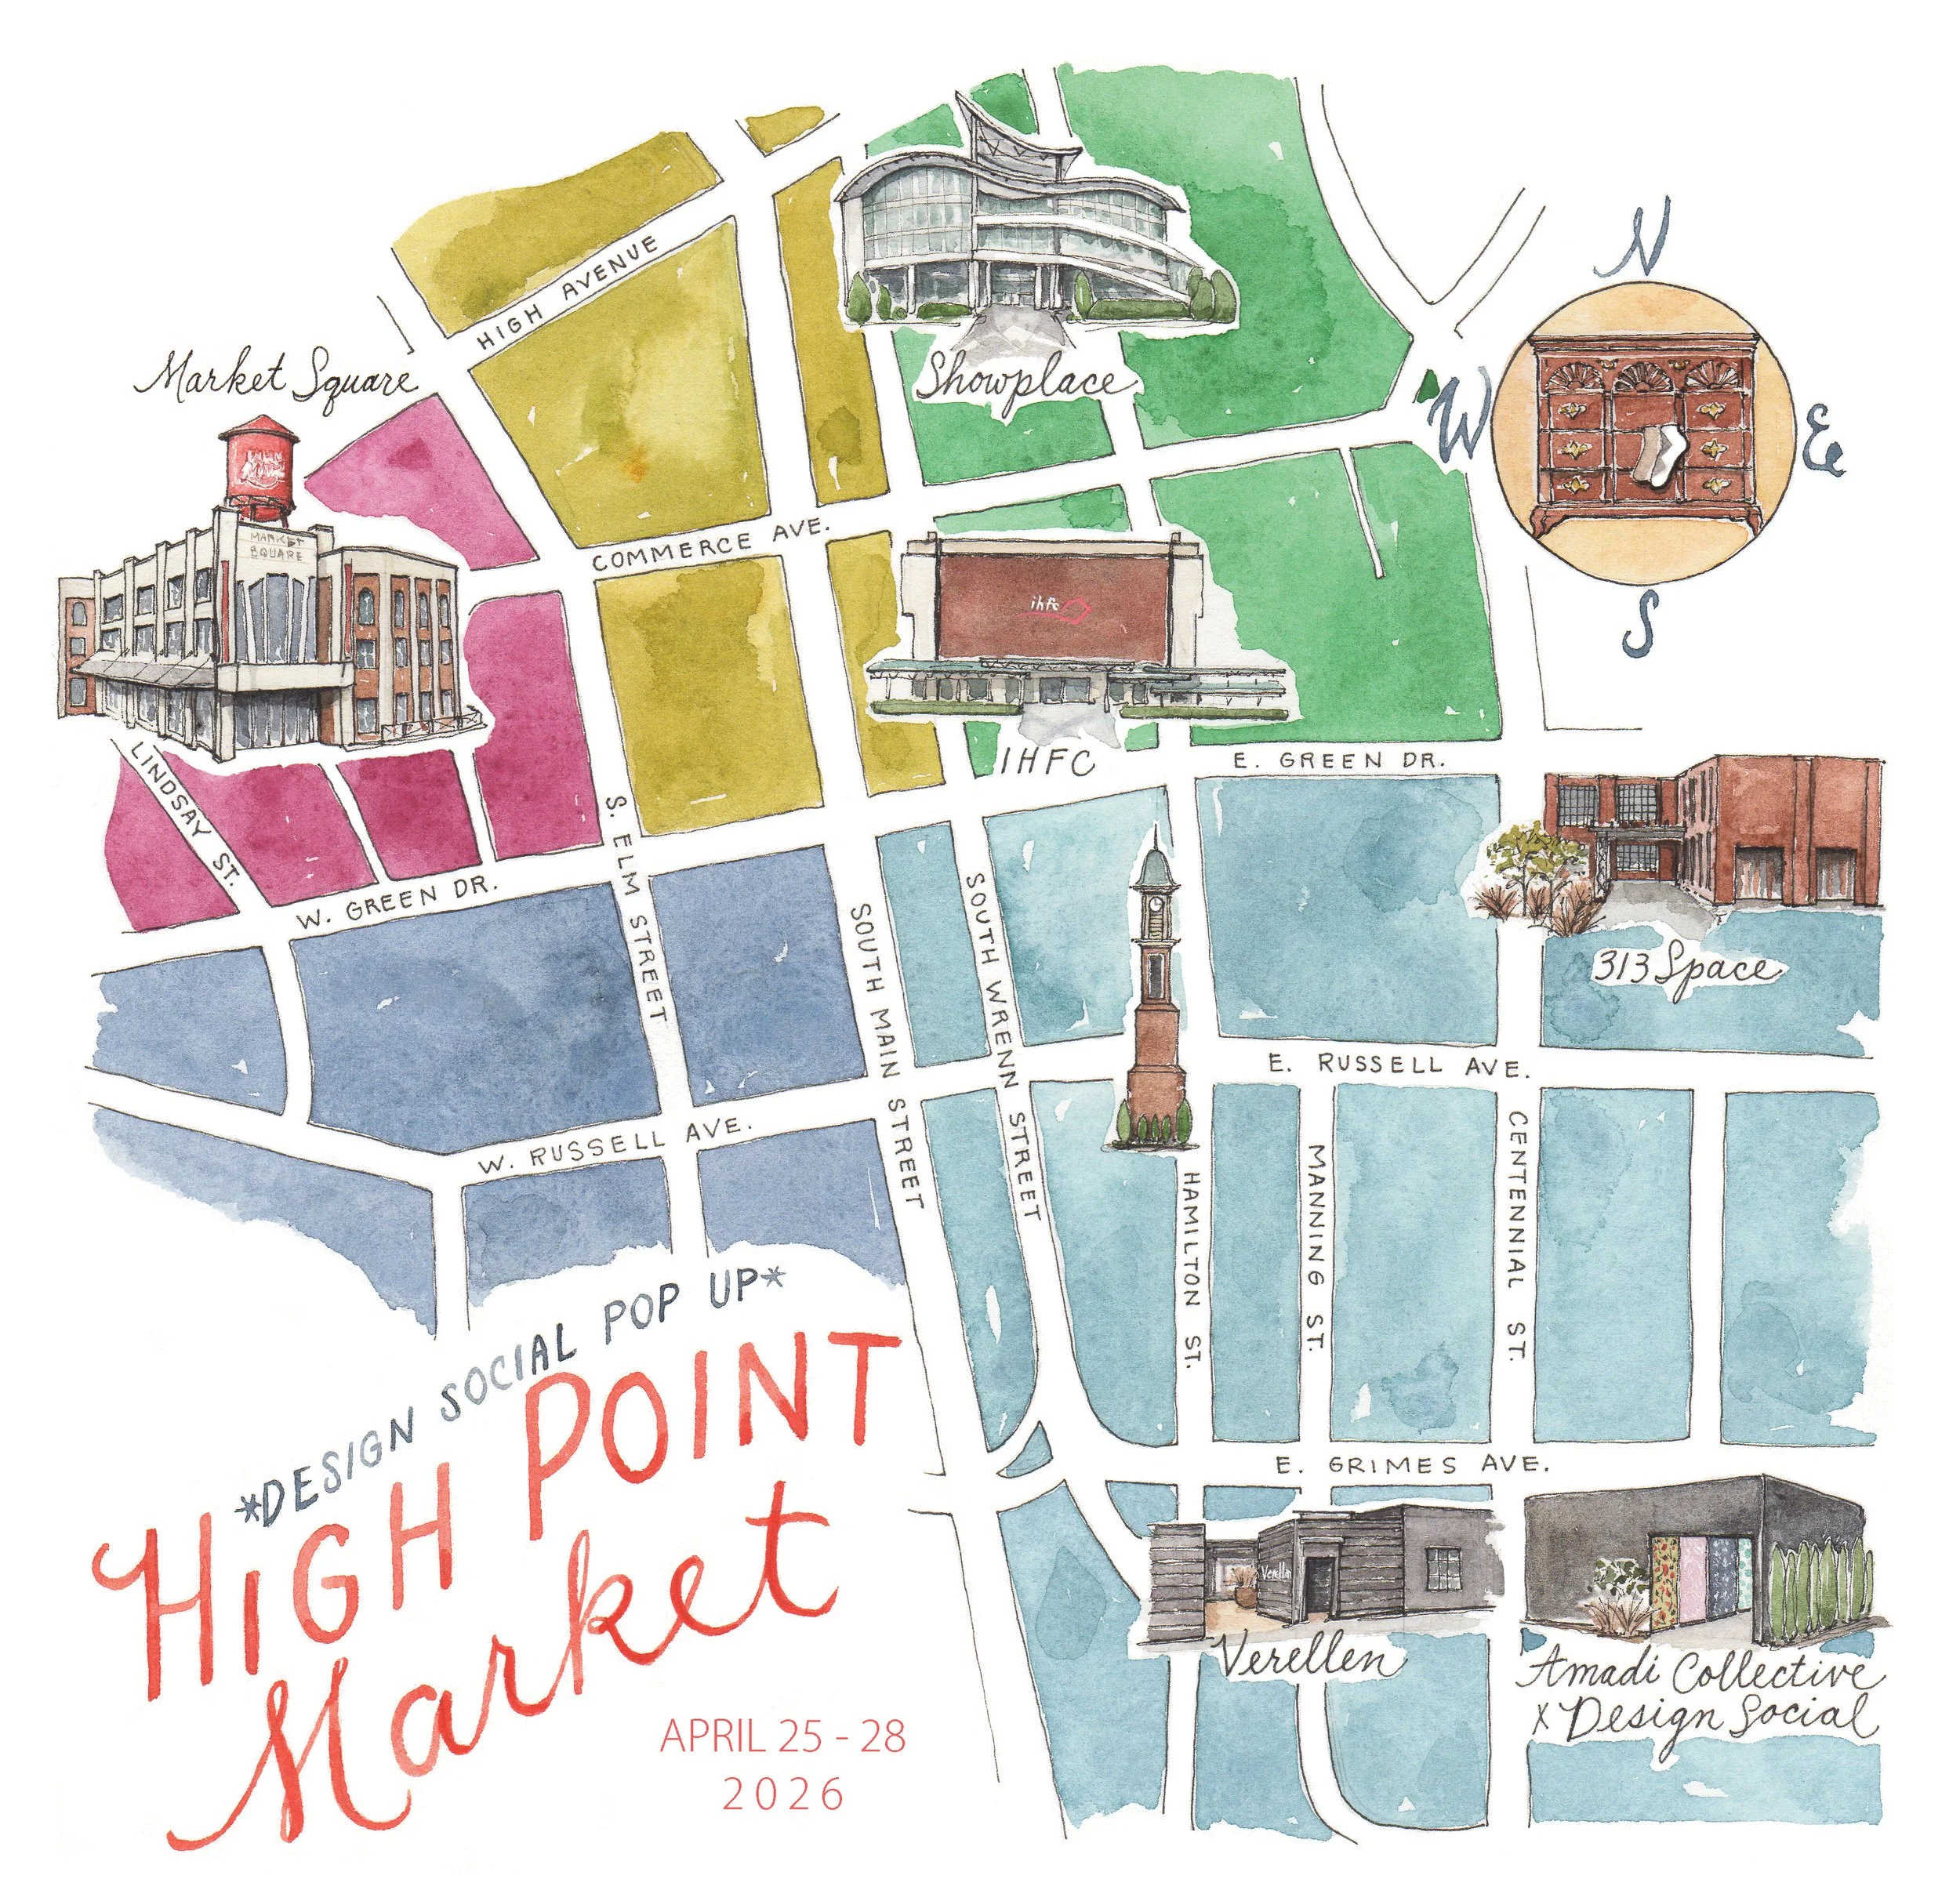 N
HIGH AVENUE
Market Square
Showplace
W
E
MARKET
SQUARE
COMMERCE AVE.
ihfc
S
IHFC
E. GREEN DR.
LINDSAY ST.
W. GREEN DR.
S. ELM STREET
SOUTH MAIN STREET
SOUTH WRENN STREET
313 Space
E. RUSSELL AVE.
W. RUSSELL AVE.
HAMILTON ST.
MANNING ST.
CENTENNIAL ST.
*DESIGN SOCIAL POP UP*
HIGH POINT
Market
E. GRIMES AVE.
Verellen
Verellen
Amadi Collective
x Design Social
APRIL 25 - 28
2026